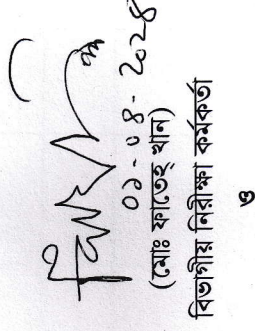 ০১-০৪-২০২৪
(মোঃ ফাতেহ খান)
বিভাগীয় নিরীক্ষা কর্মকর্তা
ও